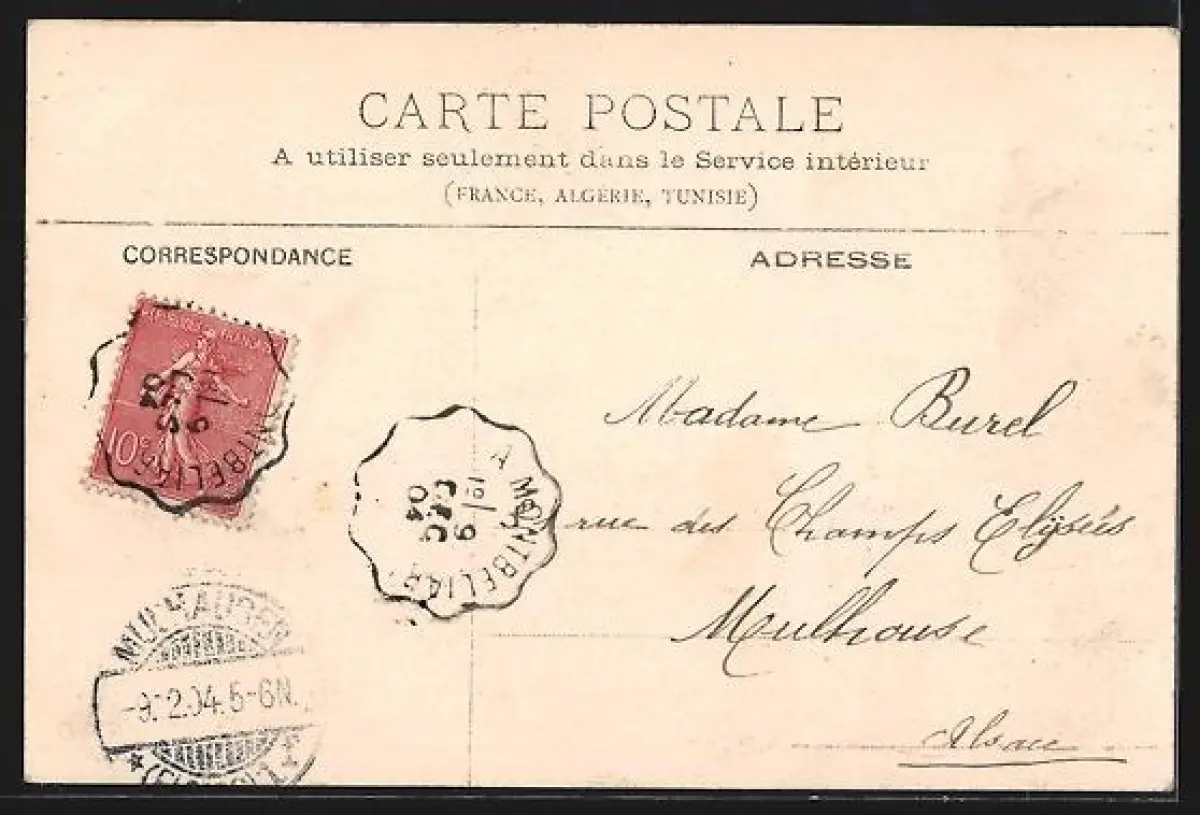 CARTE POSTALE
A utiliser seulement dans le Service intérieur
(FRANCE, ALGÉRIE, TUNISIE)
CORRESPONDANCE
ADRESSE
10c
MONTBELIARD
A MONTBELIARD
9
04
Madame Burel
rue des Champs Elysées
Mulhouse
Alsace
MULHAUSEN
-9.2.04.5-6N.